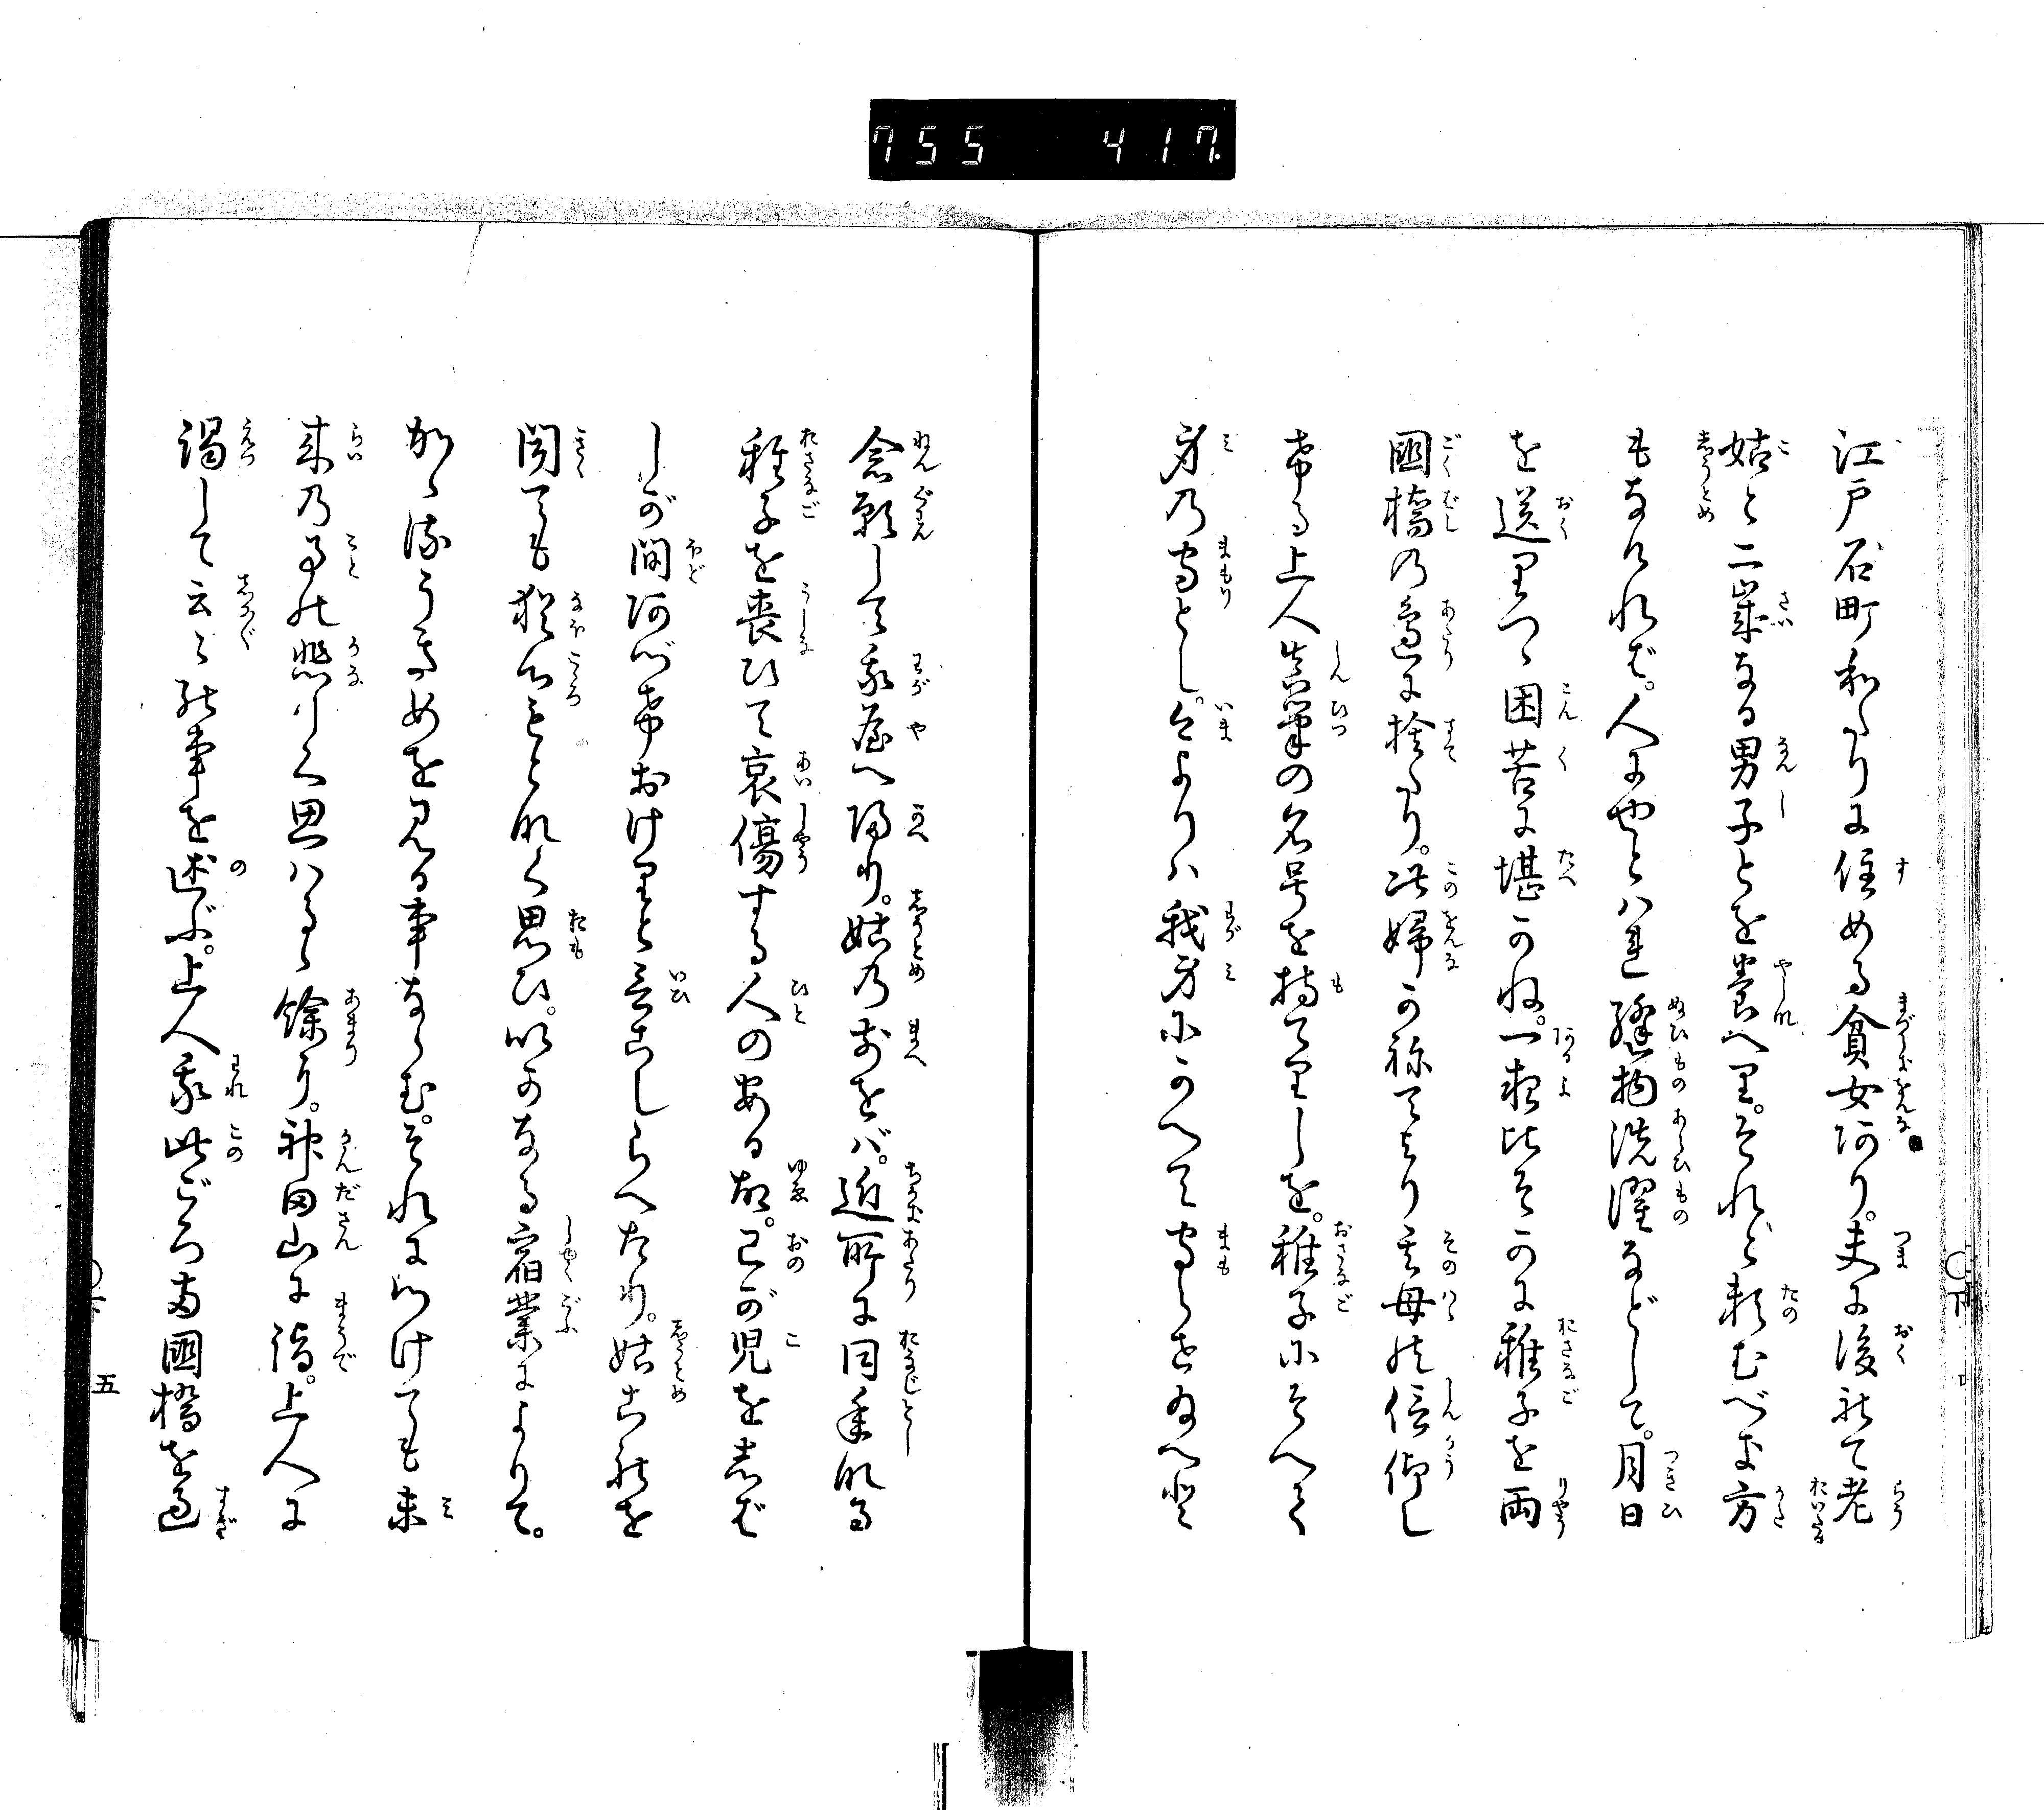 755 417.
江戸石町わたりに住める貧女阿り。夫に後れて老
姑と二歳なる男子とを養へり。されど頼むべき方
もなければ。人にやとハれ縫物洗濯などして。月日
を送りつゝ困苦に堪かね。一夜ひそかに稚子を両
國橋の邊に捨たり。此婦かねてより其母の信仰し
奉る上人真筆の名号を持てりしを。稚子にそへて
身の守とし。今よりハ我身にかへて守らせ給へと
念願して我屋へ帰り。姑の前をバ。近所に同年なる
稚子を喪ひて哀傷する人のある故。己が児をしば
しが間阿づけおけりと言こしらへたり。姑これを
聞ても猶心もとなく思ひ。いかなる宿業によりて。
かゝるうきめを見る事ならむ。それにつけても未
来の事の悲しく思ハるゝ餘り。神田山に詣。上人に
謁して云々の事を述ぶ。上人我此ごろ両國橋を過
下 五